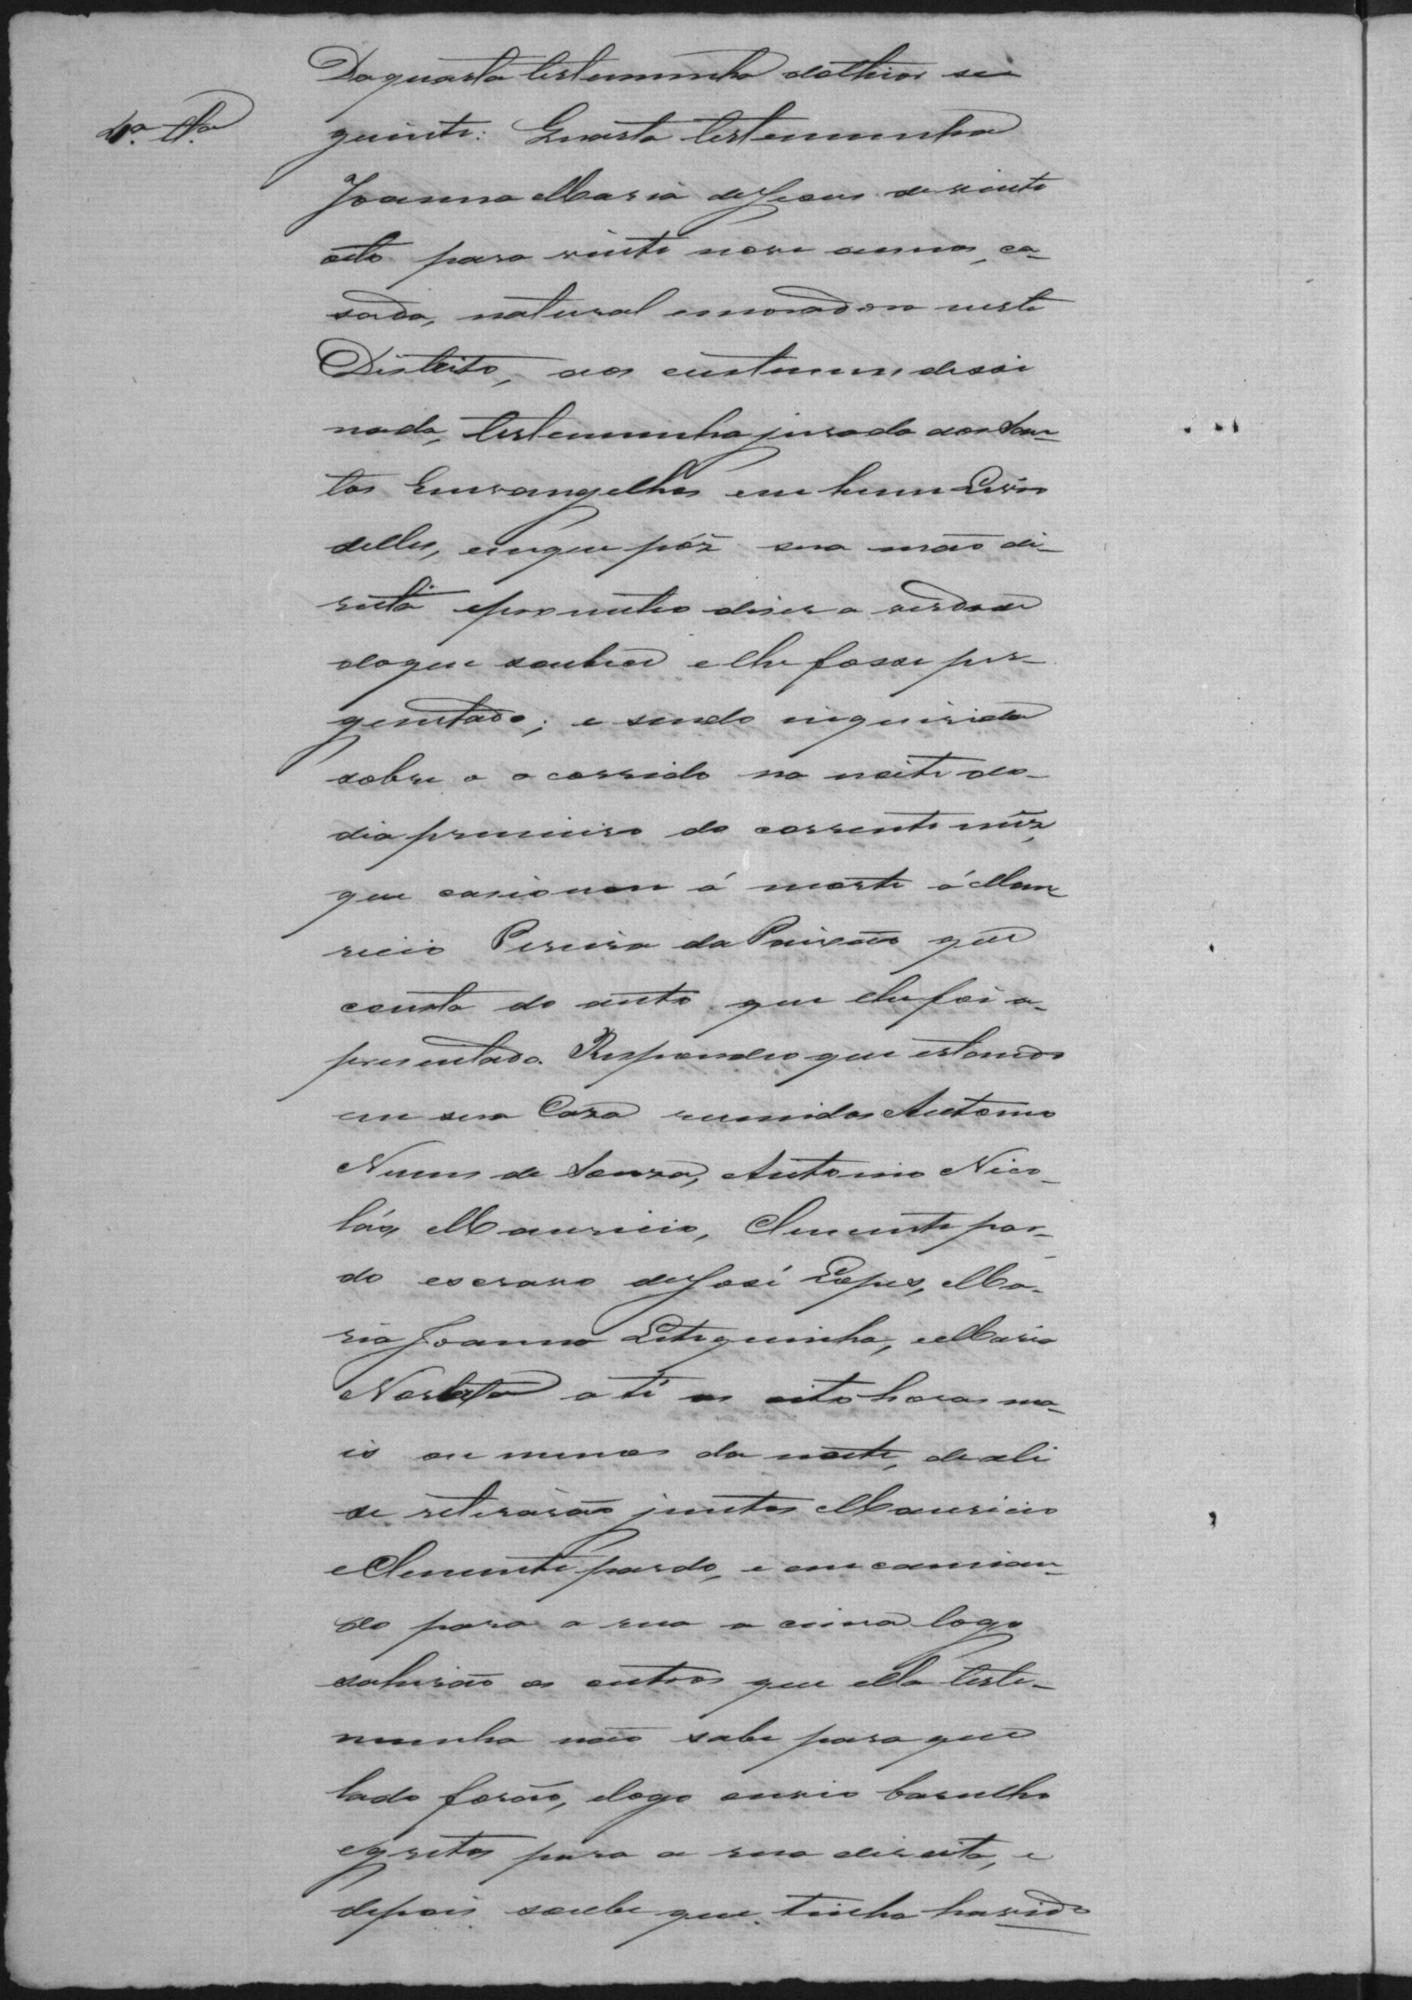 Da quarta testemunha do theor se
4ª. Tª.
guinte: Quarta testemunha
Joanna Maria de Jesus de vinte
oito para vinte nove annos, ca-
sada, natural e moradora neste
Districto, aos custumes disse
nada, testemunha jurada aos San-
tos Euvangelhos em hum Livro
delles, em que pôz sua mão di-
reita e prometteo diser a verdade
do que soubece e lhe fosse per-
guntado; e sendo inquirida
sobre o ocorrido na noite do
dia primeiro do corrente mêz,
que casionou á morte á Mau
ricio Pereira da Paixão que
consta do auto que lhe foi a-
presentado. Respondeo que estando
em sua Caza reunidos Antonio
Nunes de Souza, Antonio Nico-
láo, Mauricio, Clemente par-
do escravo de José Lopes, Ma-
ria Joanna, e Maria
até as oito horas ma-
is ou menos da noite, d'ali
se retirarão juntos Mauricio
e Clemente pardo, e em camian-
do para a rua a cima logo
sahirão os outros que ella teste-
munha não sabe para que
lado forão, e logo ouvio barulho
e gritos para a rua direita, e
depois soube que tinha havido